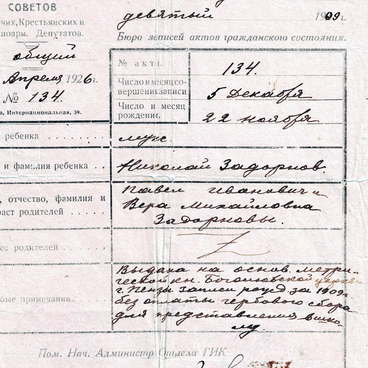 СОВЕТОВ
чих, Крестьянских и
Депутатов.
девятый 1909.
Бюро записей актов гражданского состояния.
общий
Апреля 1926 г.
№ 134.
Интернациональная, 39.
№ акта. 134.
Число и месяц со-
вершения записи 5 Декабря
Число и месяц
рождения. 22 ноября
ребенка муж
и фамилия ребенка Николай Задорнов.
отчество, фамилия и
раст родителей Павел Иванович и
Вера Михайловна
Задорновы.
ес родителей
примечания.
Выдана на основ. метри-
ческой кн. Богоявленской церкви
г. Пензы записи рожд за 1909г.
без оплаты гербового сбора
для представления в шко
лу
Пом. Нач. Администр Отдела ГИК